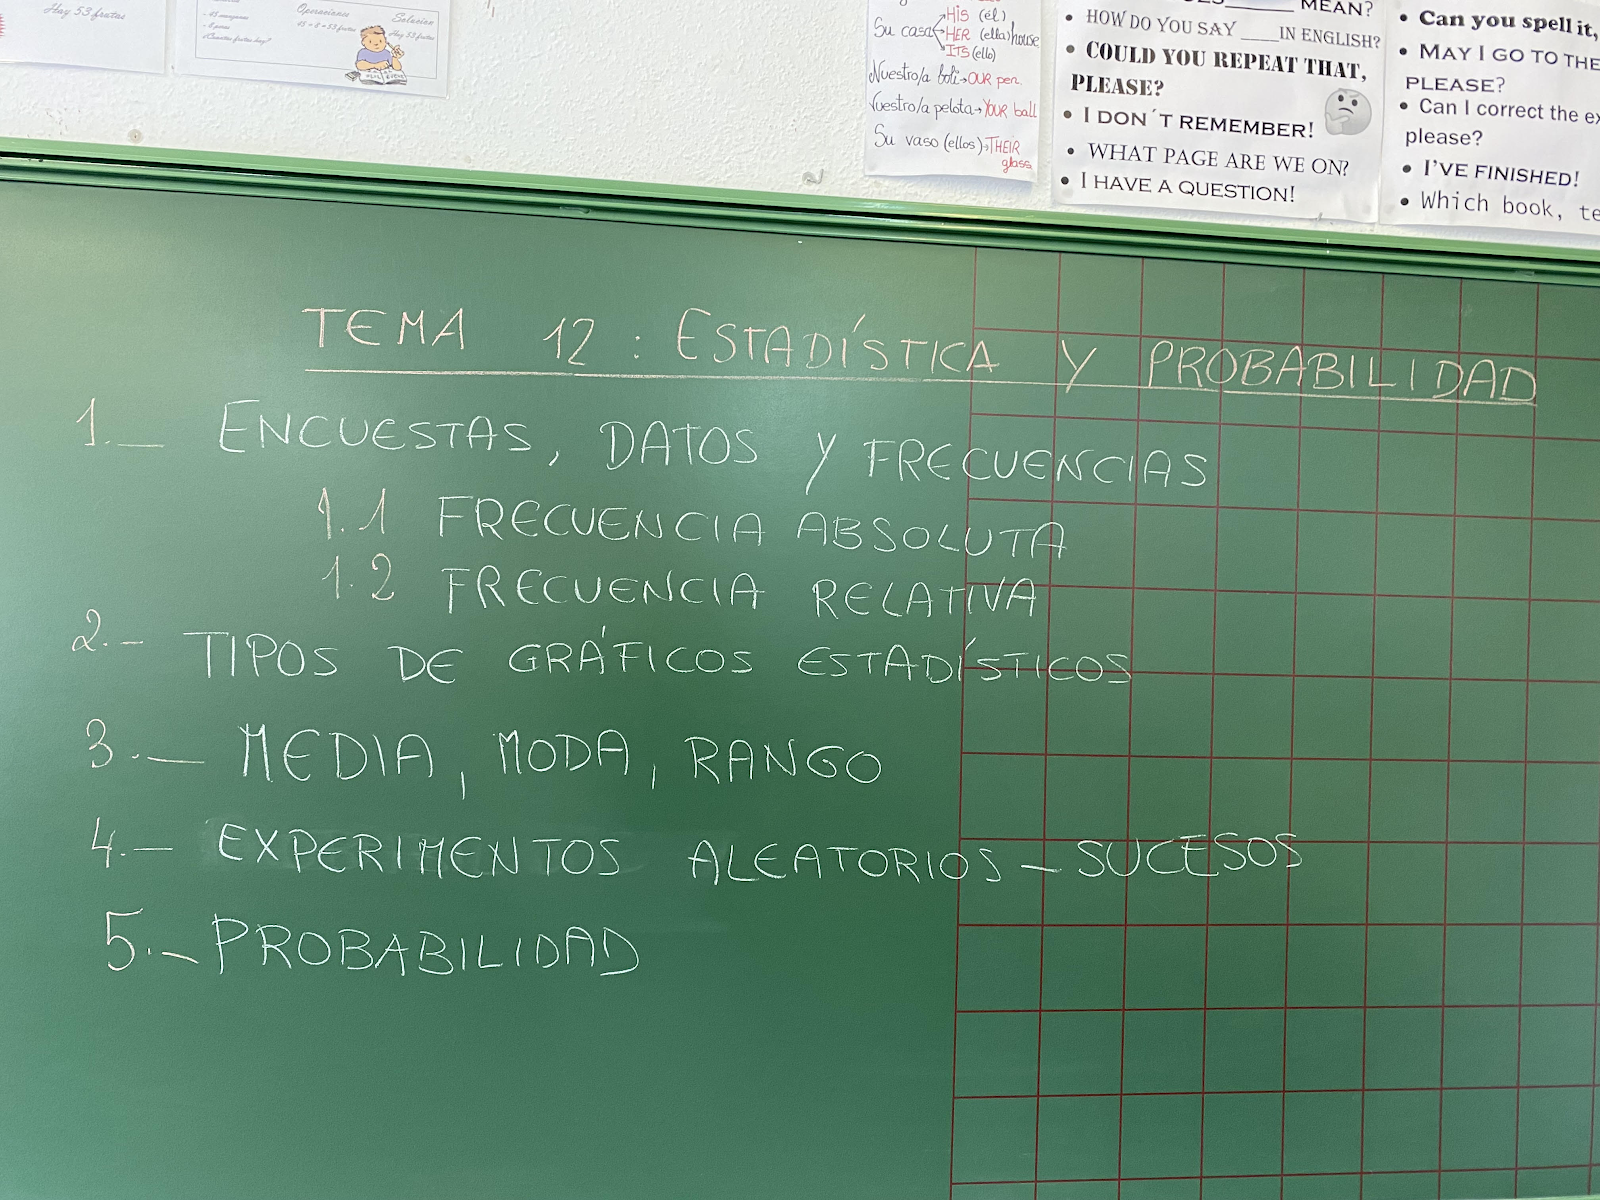 Hay 53 frutas
Operaciones
Solucion
45 + 8 = 53 frutas
Hay 53 frutas
¿Cuantas frutas hay?
HIS (él)
Su casa HER (ella) house
ITS (ello)
Nuestro/a boli → OUR pen.
Vuestro/a pelota → YOUR ball
Su vaso (ellos) → THEIR
glass
MEAN?
• HOW DO YOU SAY ____ IN ENGLISH?
• COULD YOU REPEAT THAT,
PLEASE?
• I DON´T REMEMBER!
• WHAT PAGE ARE WE ON?
• I HAVE A QUESTION!
• Can you spell it,
• MAY I GO TO THE
PLEASE?
• Can I correct the ex
please?
• I'VE FINISHED!
• Which book, te
TEMA 12: ESTADÍSTICA Y PROBABILIDAD
1.- ENCUESTAS, DATOS Y FRECUENCIAS
1.1 FRECUENCIA ABSOLUTA
1.2 FRECUENCIA RELATIVA
2.- TIPOS DE GRÁFICOS ESTADÍSTICOS
3.- MEDIA, MODA, RANGO
4.- EXPERIMENTOS ALEATORIOS - SUCESOS
5.- PROBABILIDAD